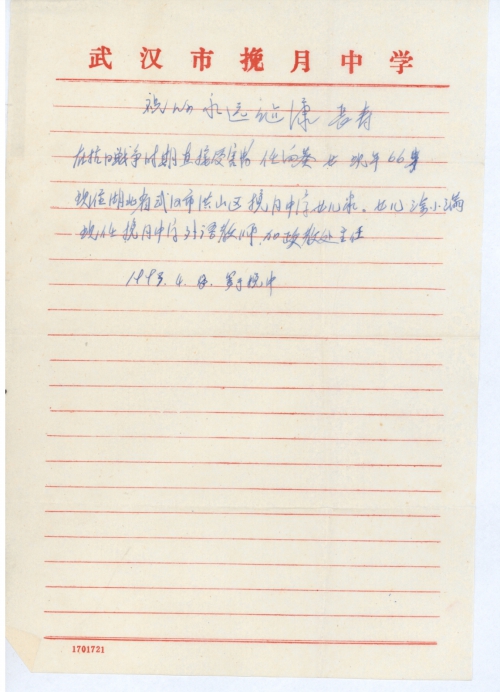 武汉市挽月中学
祝 永远健康 长寿
在抗日战争时期直接受害者 任 女 现年66岁
现住湖北省武汉市洪山区挽月中学女儿家。女儿 小满
现任挽月中学外语教师、和政教处主任
1993.4. 于挽中
1701721